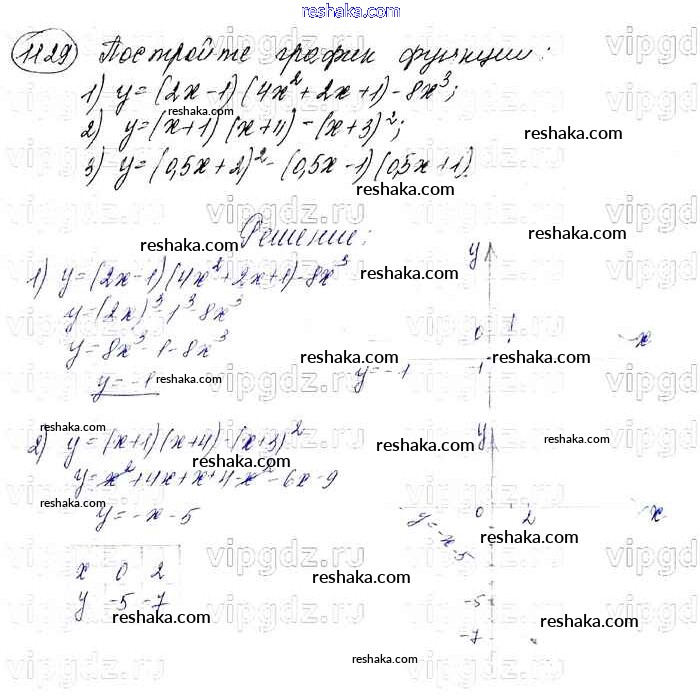 reshaka.com
1129 Постройте график функции:
1) y=(2x-1)(4x²+2x+1)-8x³;
2) y=(x+1)(x+4)-(x+3)²;
3) y=(0,5x+2)²-(0,5x-1)(0,5x+1).
Решение:
1) y=(2x-1)(4x²+2x+1)-8x³
y=(2x)³-1³-8x³
y=8x³-1-8x³
y=-1
y
0 1 x
y=-1 -1
2) y=(x+1)(x+4)-(x+3)²
y=x²+4x+x+4-x²-6x-9
y=-x-5
x 0 2
y -5 -7
y
0 2 x
y=-x-5
-5
-7
vipgdz.ru
reshaka.com